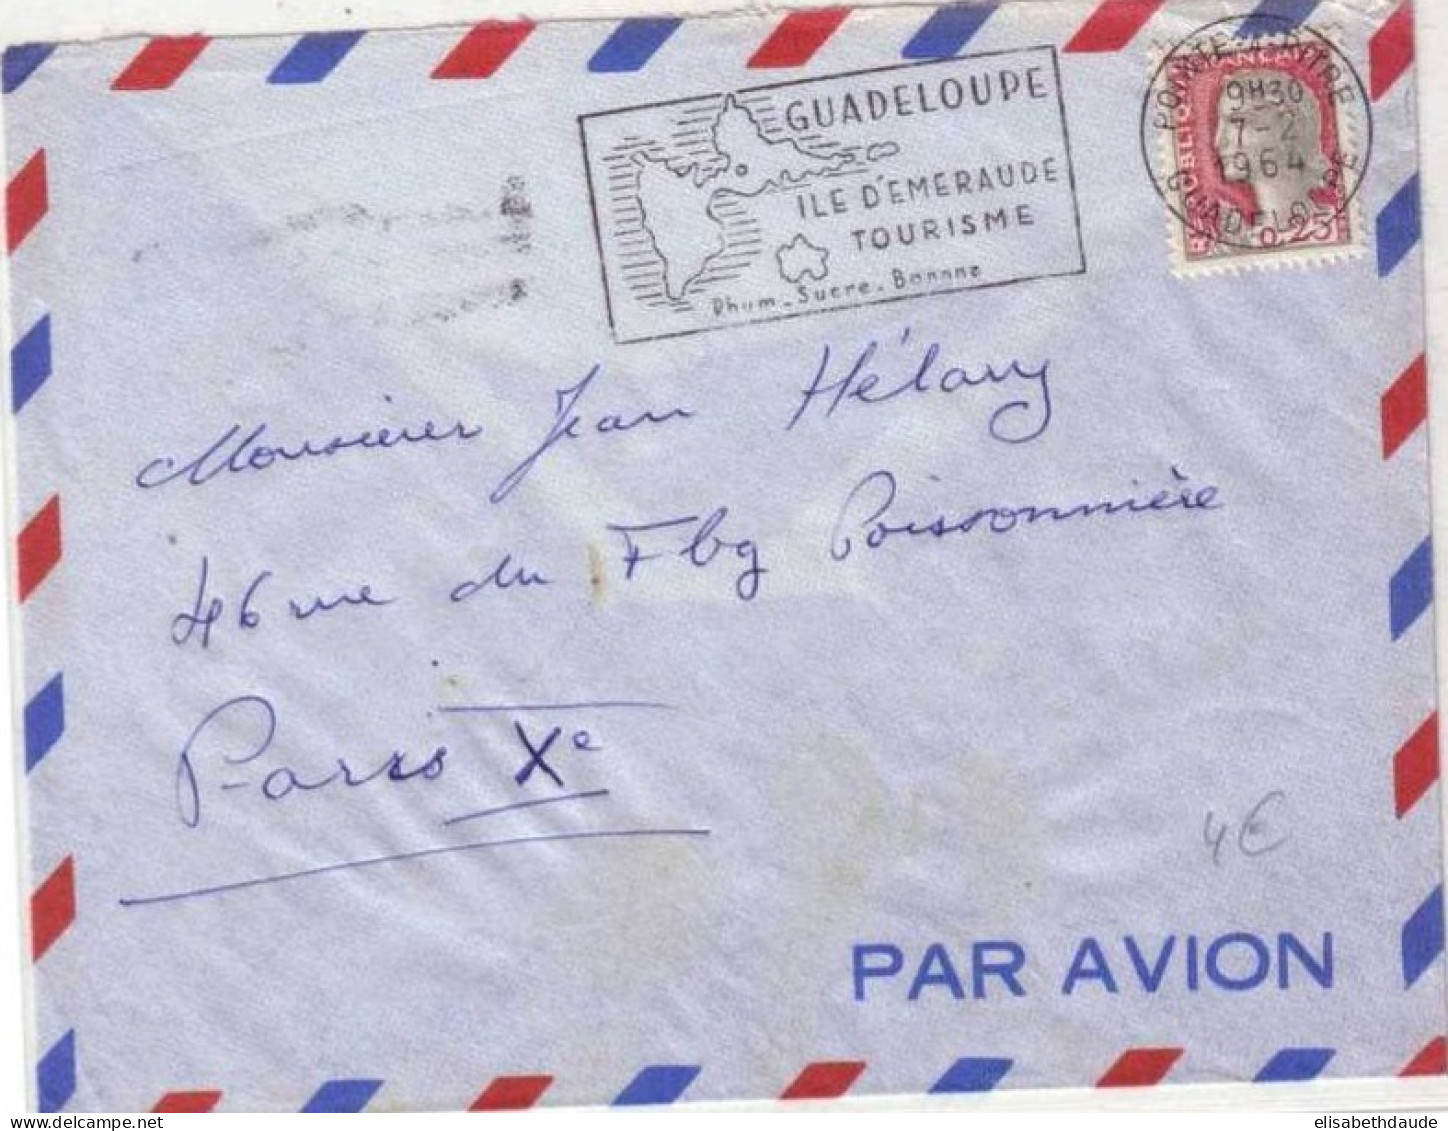 GUADELOUPE
ILE D'EMERAUDE
TOURISME
Rhum - Sucre - Banane
POINTE-A-PITRE
9H30
7-2
1964
GUADELOUPE
0,25
Monsieur Jean Hélary
46 rue du Fbg Poissonnière
Paris Xe
4€
PAR AVION
elisabethdaude